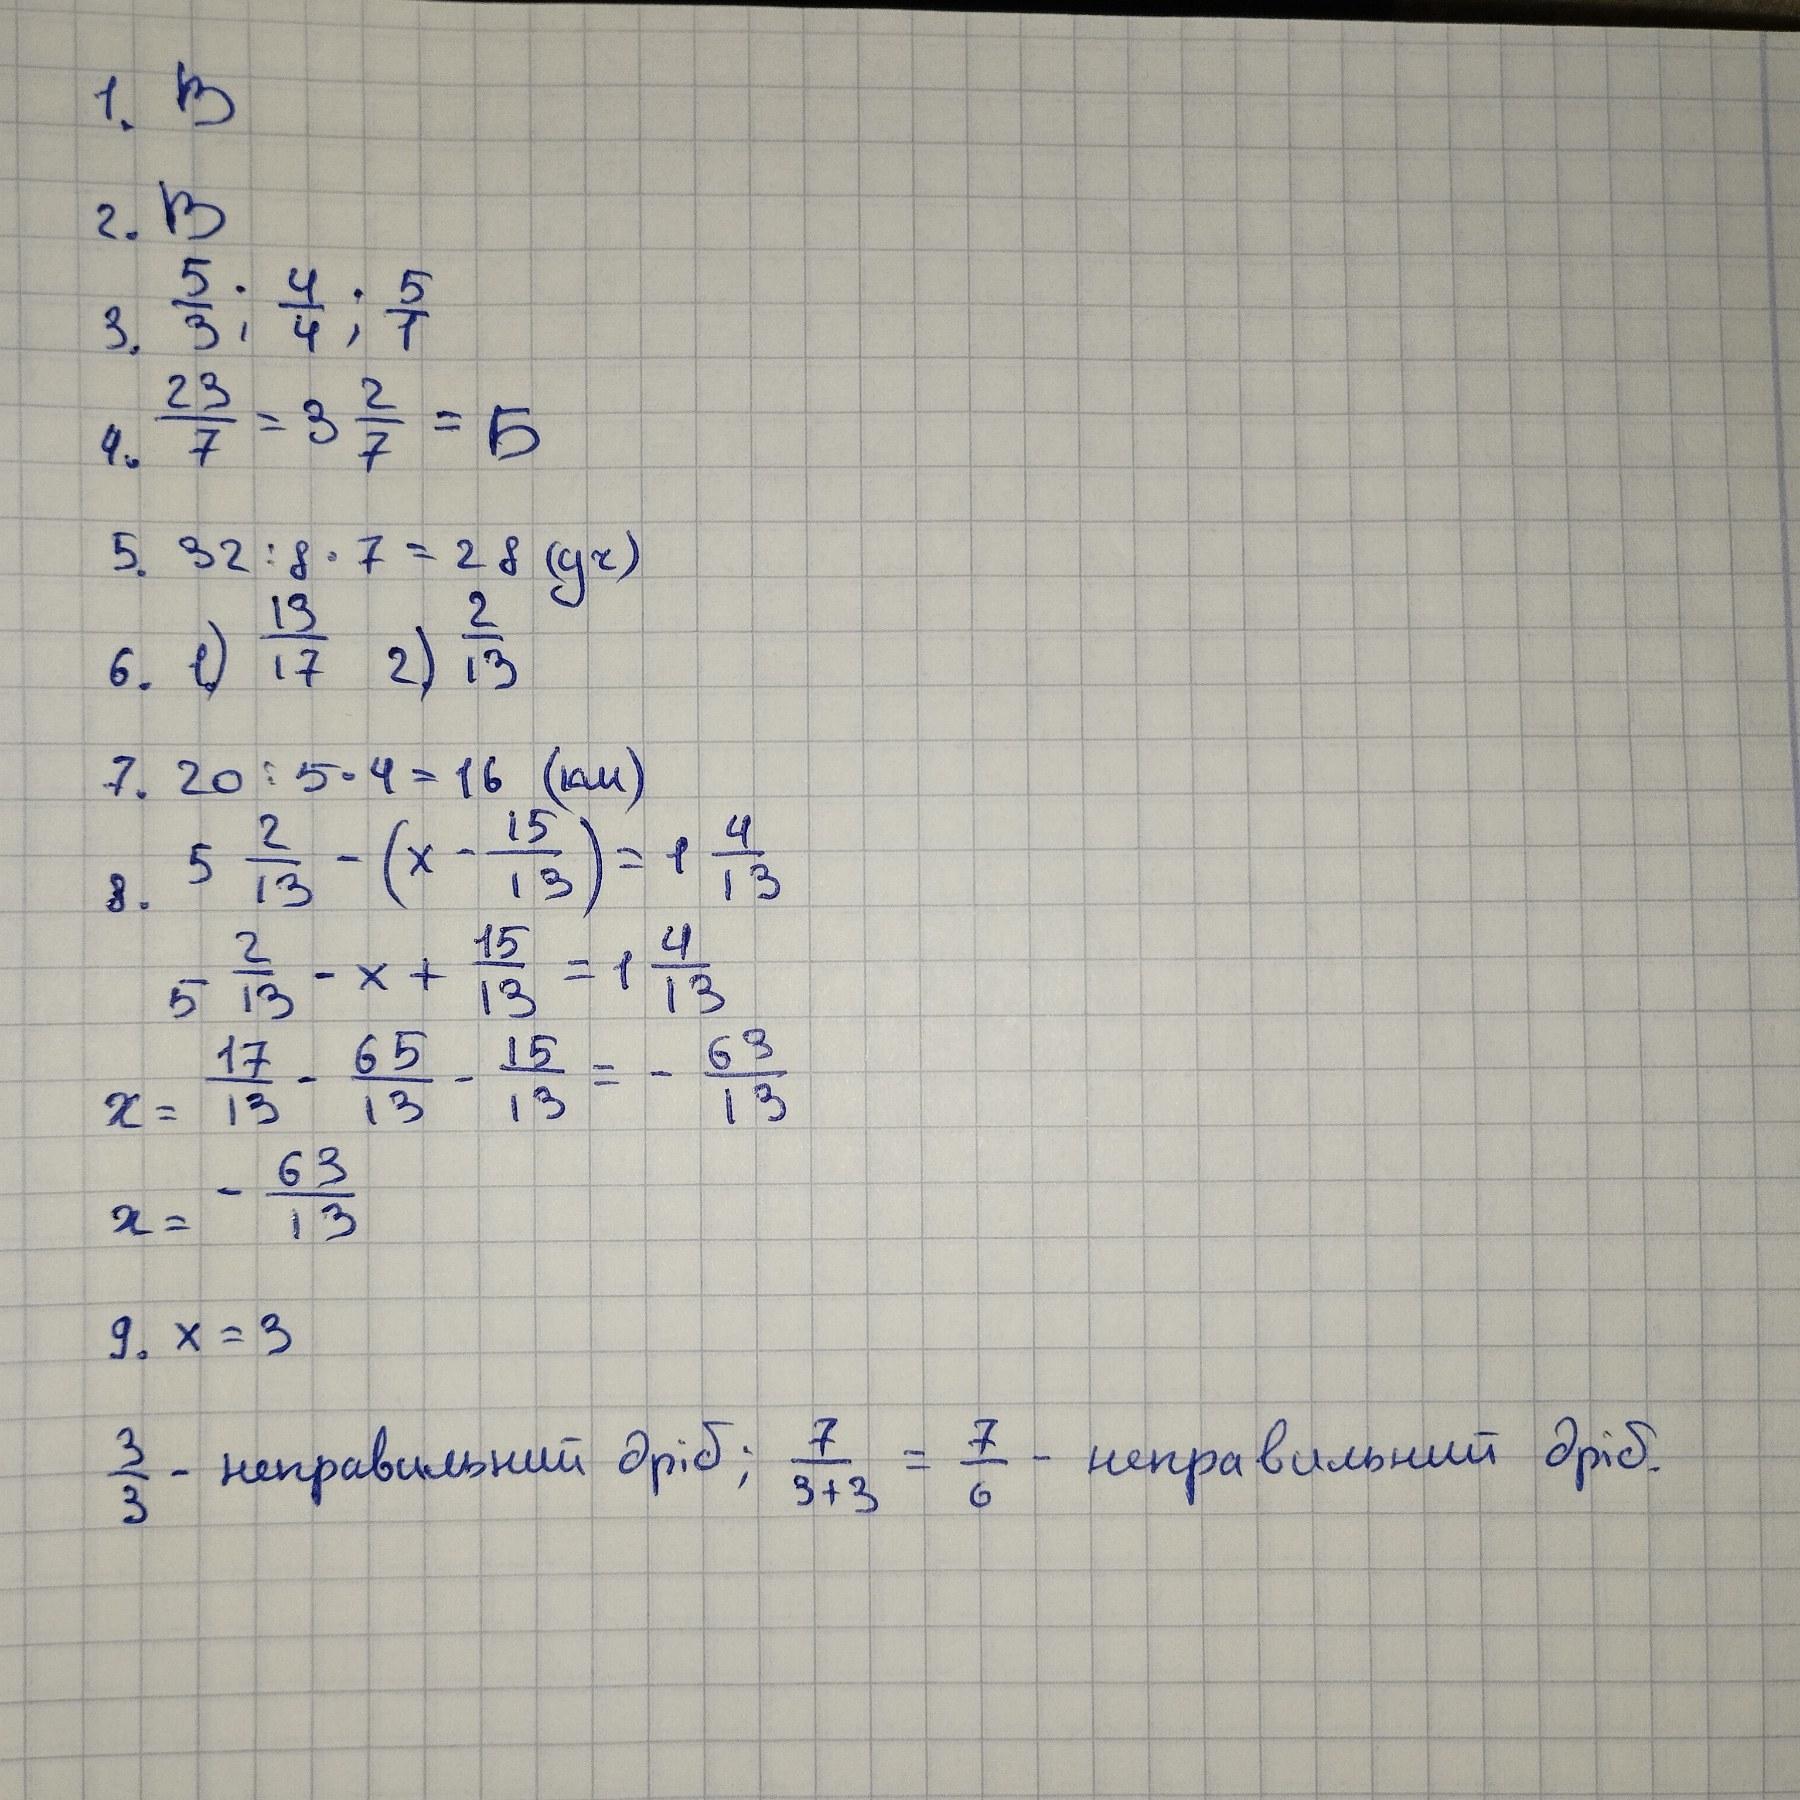 1. В
2. В
3. 5/3; 4/4; 5/1
4. 23/7 = 3 2/7 = Б
5. 32 : 8 · 7 = 28 (уч)
6. 1) 13/17 2) 2/13
7. 20 : 5 · 4 = 16 (км)
8. 5 2/13 - (x - 15/13) = 1 4/13
5 2/13 - x + 15/13 = 1 4/13
x = 17/13 - 65/13 - 15/13 = - 63/13
x = - 63/13
9. x = 3
3/3 - неправильний дріб; 7/(3+3) = 7/6 - неправильний дріб.